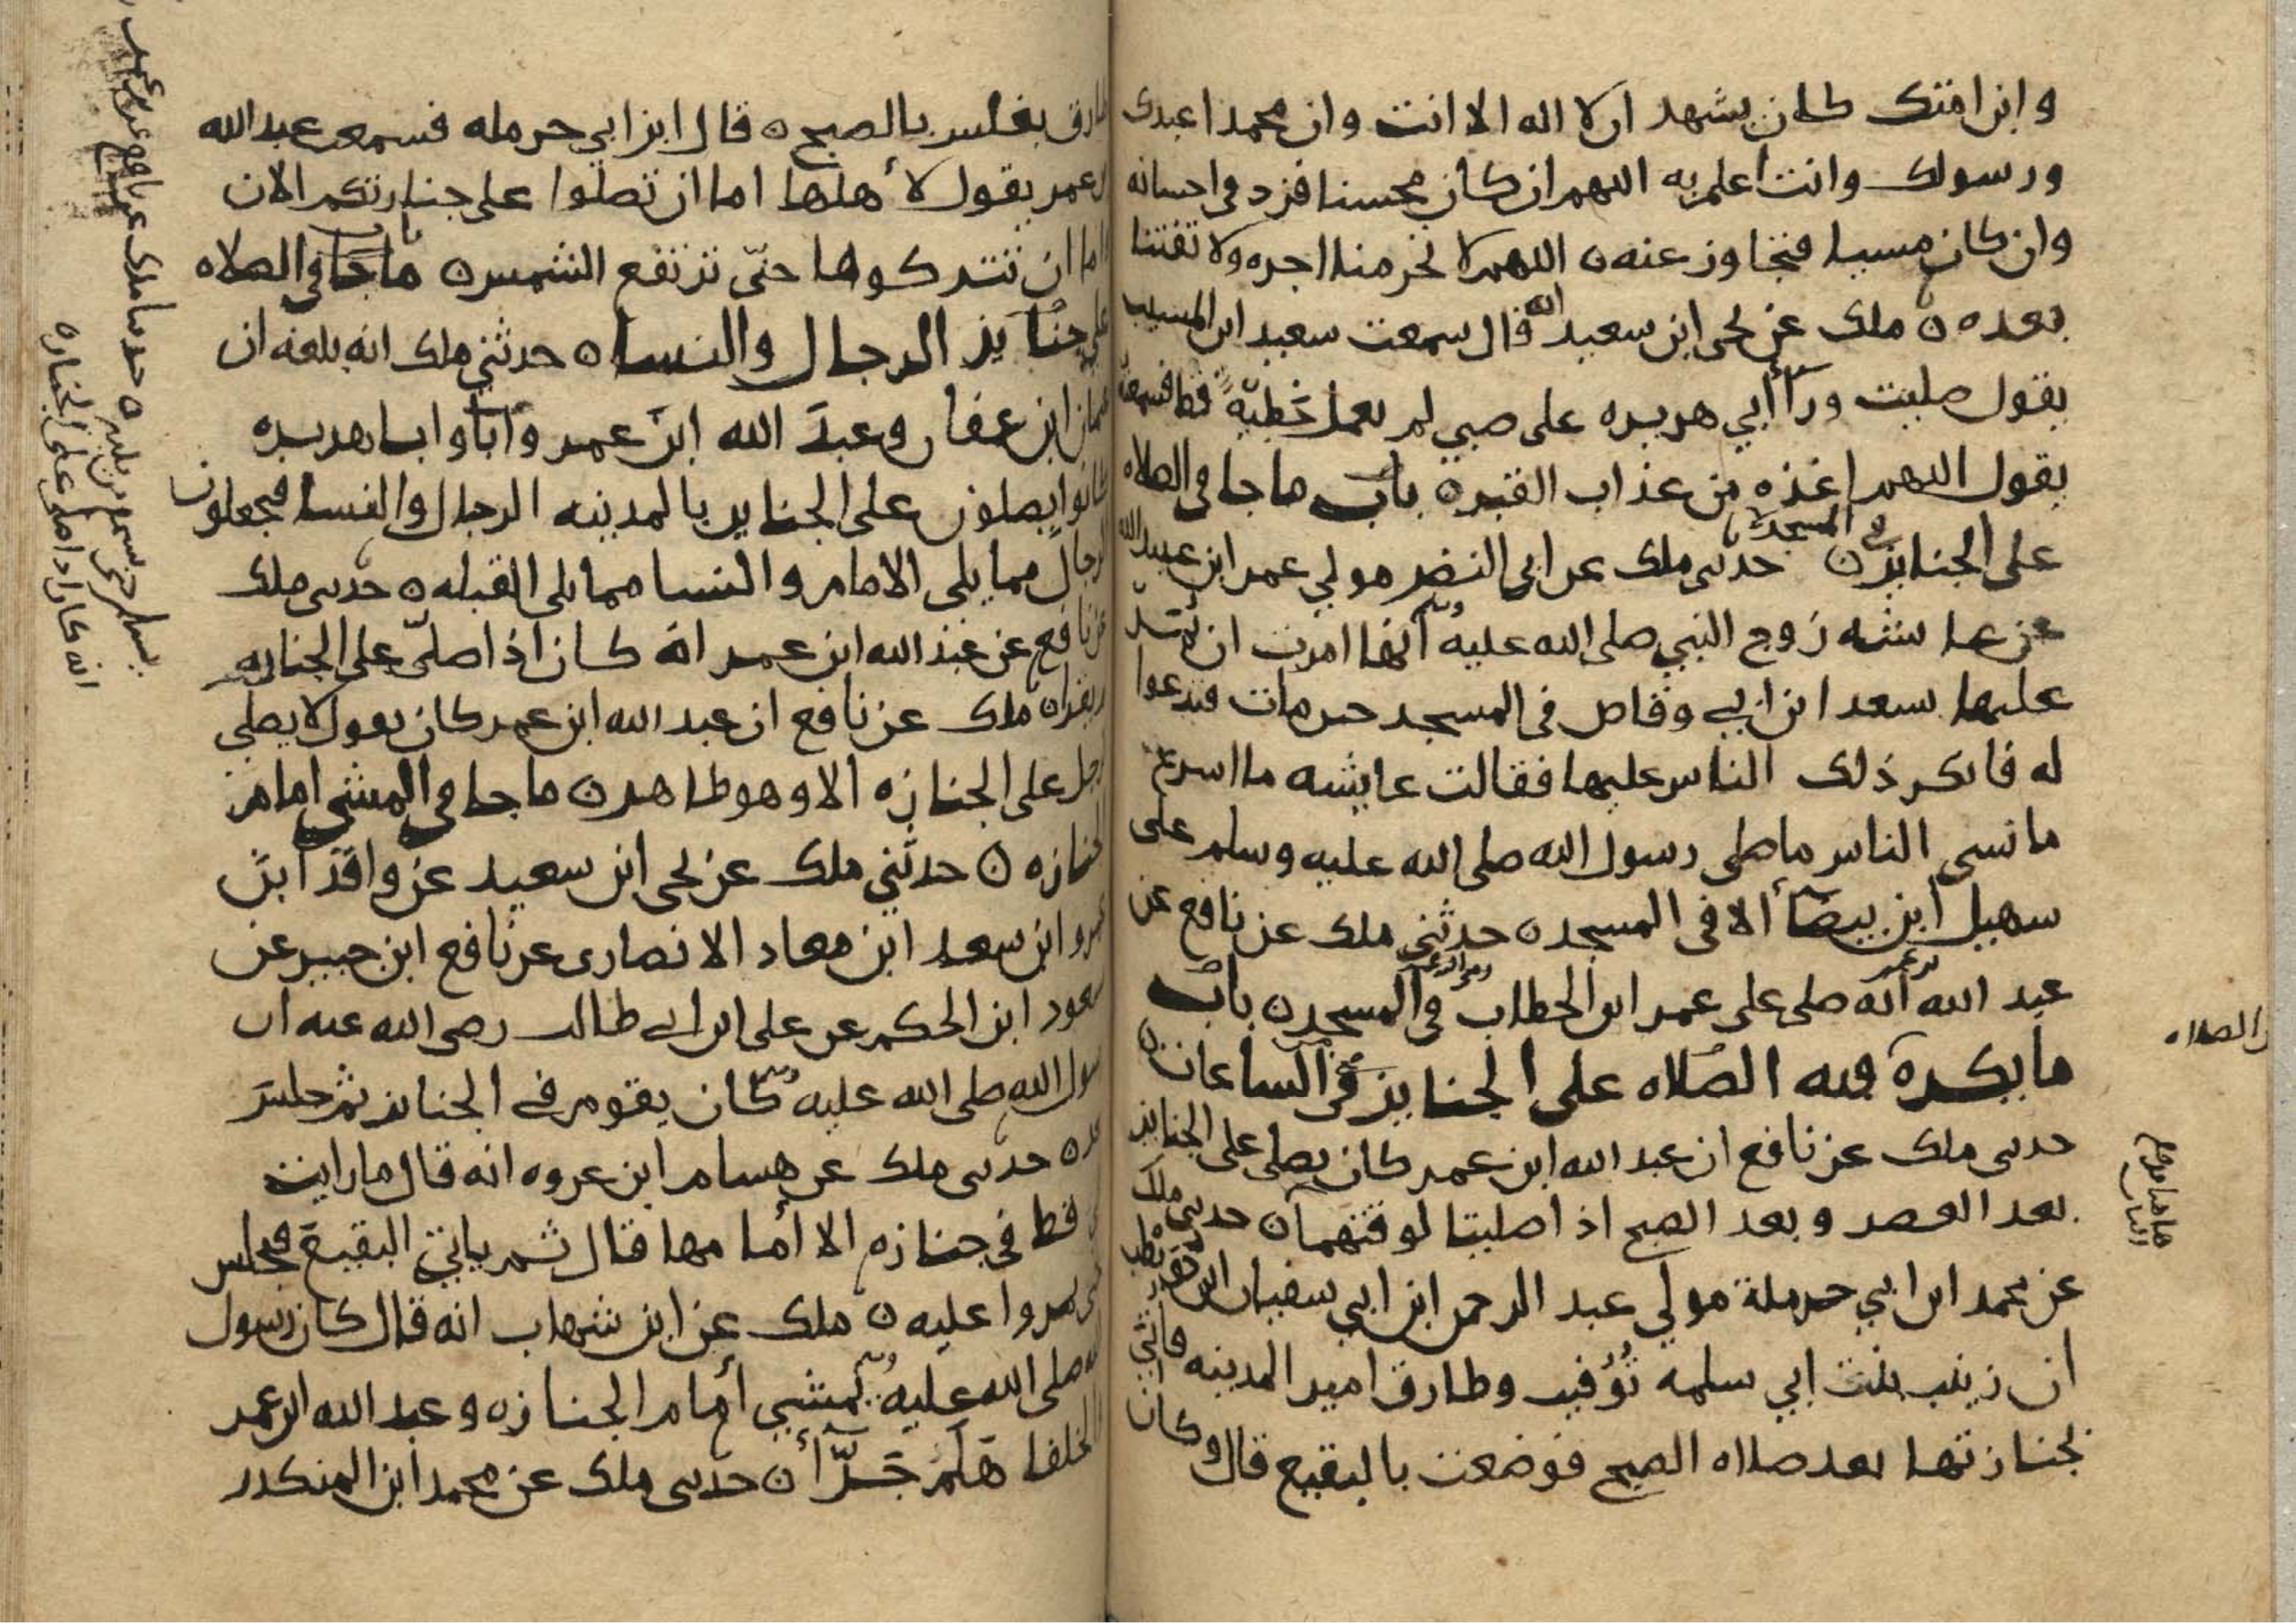 وابن امتك كان يشهد ان لا اله الا انت وان محمدا عبدك
ورسولك وانت اعلم به اللهم ان كان محسنا فزد في احسانه
وان كان مسيا فتجاوز عنه اللهم لا تحرمنا اجره ولا تفتنا
بعده ملك عن يحي ابن سعيد انه قال سمعت سعيد ابن المسيب
يقول صليت ورآ أبي هريره على صبي لم يعمل خطية قط فسمعته
يقول اللهم اعذه من عذاب القبر باب ما جا في الصلاه
على الجنايز في المسجد حدثني ملك عن ابي النضر مولي عمر ابن عبيد الله
عن عايشه زوج النبي صلى الله عليه وسلم انها امرت ان يمر
عليها بسعد ابن ابي وقاص في المسجد حين مات فتدعوا
له فانكر ذلك الناس عليها فقالت عايشه ما اسرع
ما نسى الناس ما صلى رسول الله صلى الله عليه وسلم على
سهيل ابن بيضآ الا في المسجد حدثني ملك عن نافع عن
عبد الله ابن عمر انه صلى على عمر ابن الخطاب في المسجد باب
ما يكره فيه الصلاه على الجنايز في الساعات
حدثني ملك عن نافع ان عبد الله ابن عمر كان يصلي على الجنايز
بعد العصر وبعد الصبح اذا صليتا لوقتهما حدثني ملك
عن محمد ابن ابي حرملة مولي عبد الرحمن ابن ابي سفيان ابن حويطب
ان زينب بنت ابي سلمه توفيت وطارق امير المدينه فاتي
بجنازتها بعد صلاه الصبح فوضعت بالبقيع قال وكان
الصلاه
طارق يغلس بالصبح قال ابن ابي حرمله فسمعت عبد الله
ابن عمر يقول لأهلها اما ان تصلوا على جنازتكم الان
واما ان تتركوها حتى ترتفع الشمس باب ما جا في الصلاه
على جنايز الرجال والنسا حدثني ملك انه بلغه ان
عثمان ابن عفان وعبد الله ابن عمر وابا هريره
كانوا يصلون على الجنايز بالمدينه الرجال والنسا فيجعلون
الرجال مما يلي الامام والنسا مما يلي القبله حدثني ملك
عن نافع عن عبد الله ابن عمر انه كان اذا صلى على الجنازه
ملك عن نافع ان عبد الله ابن عمر كان يقول لا يصلي
الرجل على الجنازه الا وهو طاهر ما جا في المشي امام
الجنازه حدثني ملك عن يحي ابن سعيد عن واقد ابن
عمرو ابن سعد ابن معاد الانصاري عن نافع ابن جبير عن
مسعود ابن الحكم عن على ابن ابي طالب رضي الله عنه ان
رسول الله صلى الله عليه وسلم كان يقوم في الجنايز ثم جلس
بعد حدثني ملك عن هسام ابن عروه انه قال ما رايت
ابي قط في جنازه الا أمامها قال ثم ياتي البقيع فيجلس
حتى يمروا عليه ملك عن ابن شهاب انه قال كان رسول
الله صلى الله عليه وسلم يمشي أمام الجنازه وعبد الله ابن عمر
والخلفا هلم جرّا حدثني ملك عن محمد ابن المنكدر
حدثنا ملك عن نافع عن ابن عمر
يسلم حتى يسمع من يليه
انه كان اذا صلى على الجنازه